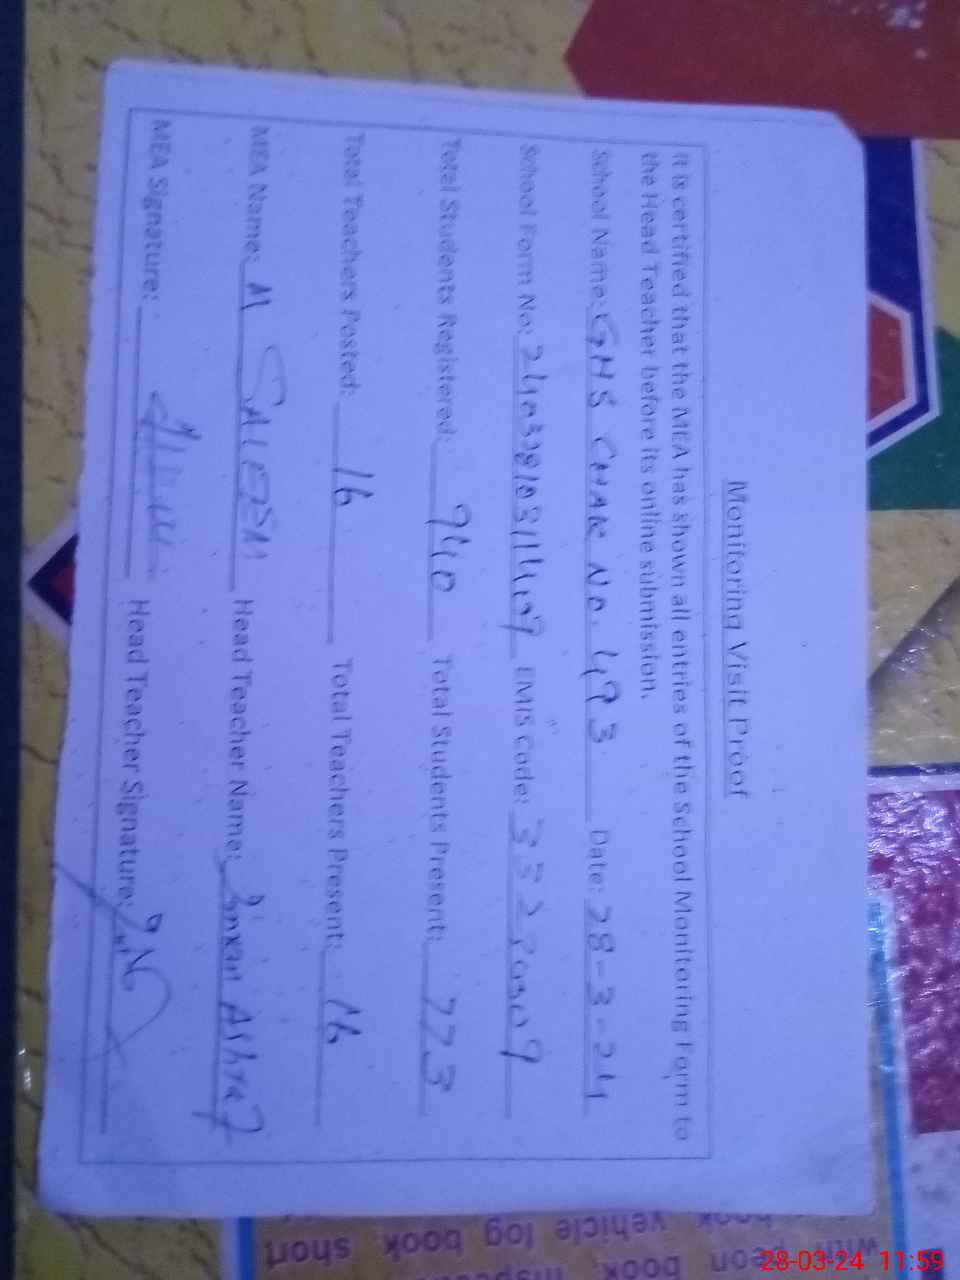 Monitoring Visit Proof
It is certified that the MEA has shown all entries of the School Monitoring Form to
the Head Teacher before its online submission.
School Name: GHS CHAK NO. 493 Date: 28-3-24
School Form No: EMIS Code:
Total Students Registered: 940 Total Students Present: 773
Total Teachers Posted: 16 Total Teachers Present: 16
MEA Name: M SALEEM Head Teacher Name: Imran Ashraf
MEA Signature: Head Teacher Signature:
vehicle log book, short
with peon book,
28-03-24 11:59